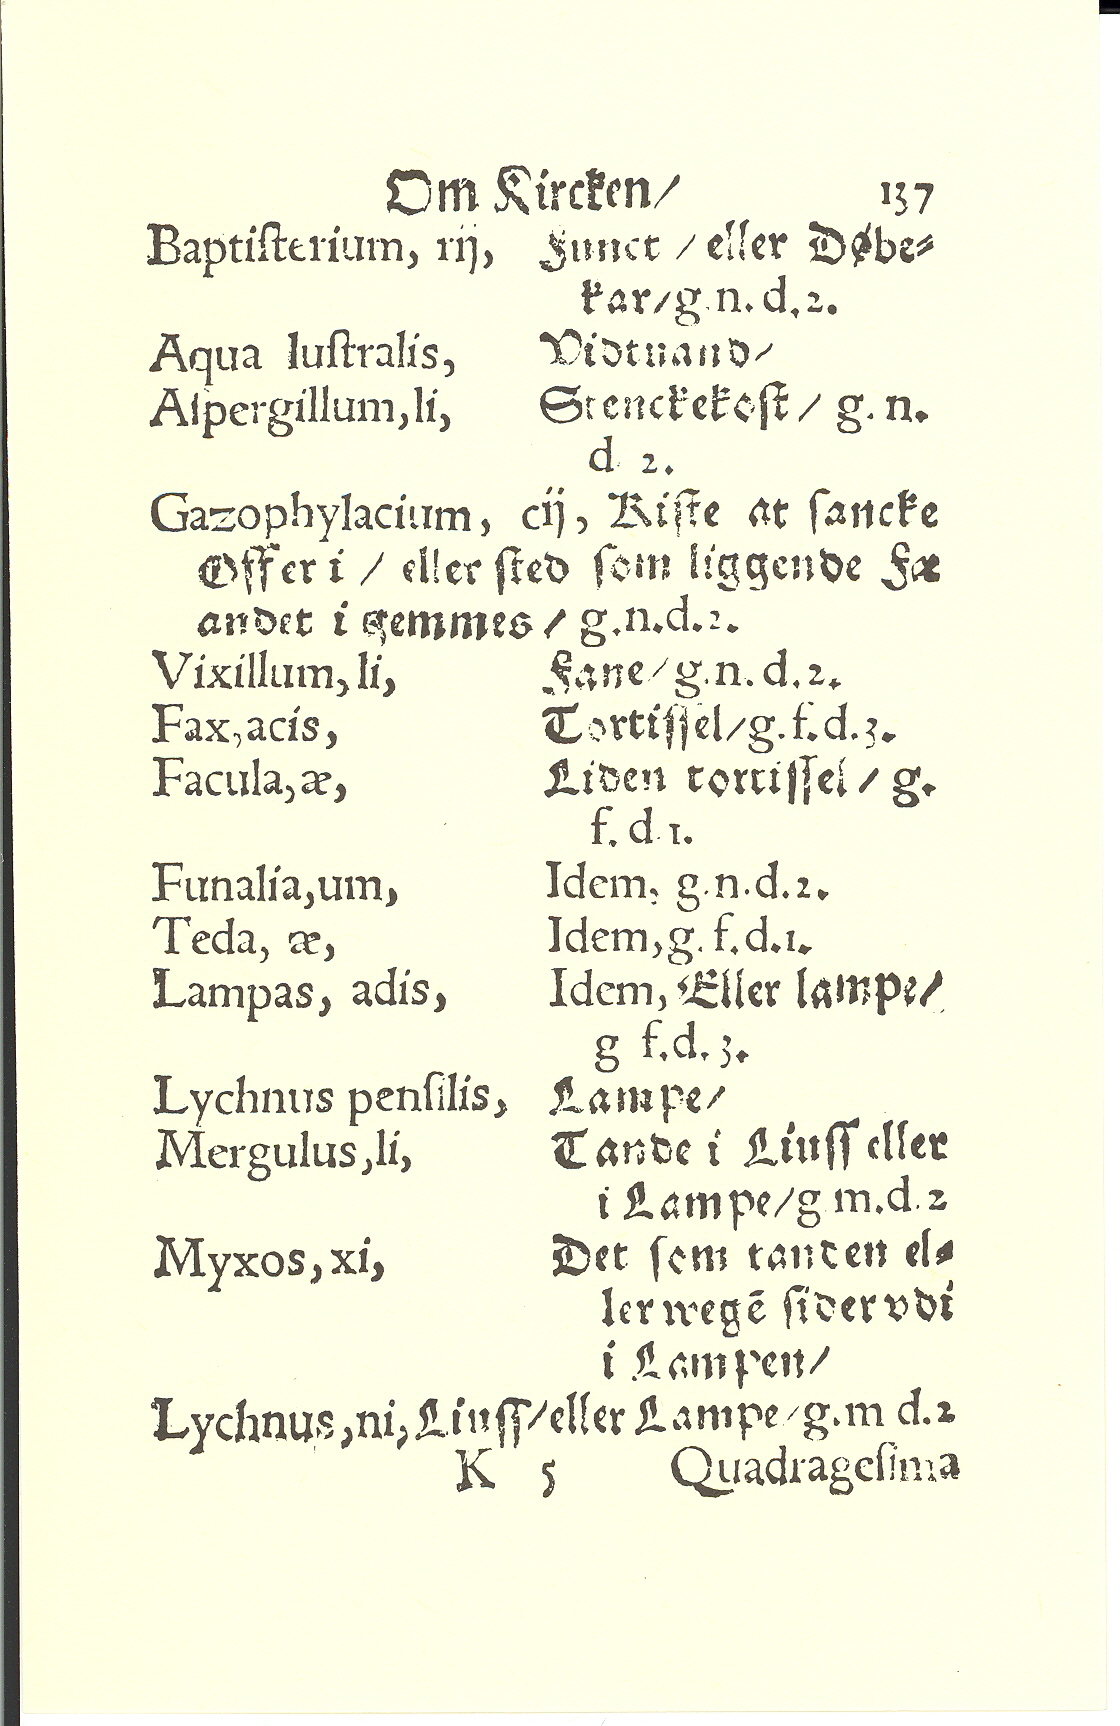 Om Kircken/ 137
Baptiſterium, rij, Funct / eller Døbe⸗
kar/g.n.d.2.
Aqua luſtralis, Vidtuand/
Aſpergillum,li, Stenckekoſt / g.n.
d 2.
Gazophylacium, cij, Kiſte at ſancke
Offer i / eller ſted ſom liggende Fæ
andet i gemmes / g.n.d.2.
Vixillum,li, Fane/g.n.d.2.
Fax,acis, Tortiſſel/g.f.d.3.
Facula,æ, Liden tortiſſel / g.
f.d.1.
Funalia,um, Idem, g.n.d.2.
Teda, æ, Idem,g.f.d.1.
Lampas, adis, Idem, Eller lampe/
g f.d.3.
Lychnus penſilis, Lampe/
Mergulus,li, Tande i Liuſſ eller
i Lampe/g m.d.2
Myxos,xi, Det ſom tanden el⸗
ler wegē ſider vdi
i Lampen/
Lychnus,ni,Liuſſ/eller Lampe/g.m d.2
K 5 Quadrageſima